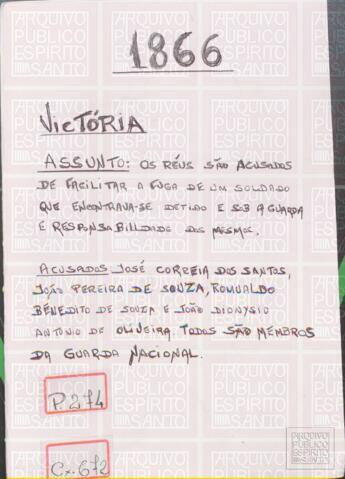 1866
VICTÓRIA
ASSUNTO: OS RÉUS SÃO ACUSADOS
DE FACILITAR A FUGA DE UM SOLDADO
QUE ENCONTRAVA-SE DETIDO E SOB A GUARDA
E RESPONSABILLDADE DOS MESMOS.
ACUSADOS JOSÉ CORREIA DOS SANTOS,
JOÃO PEREIRA DE SOUZA, ROMUALDO
BENEDITO DE SOUZA E JOÃO DIONYSIO
ANTONIO DE OLIVEIRA. TODOS SÃO MEMBROS
DA GUARDA NACIONAL.
P.274
Cx.672
ARQUIVO
PÚBLICO
ESPÍRITO
SANTO